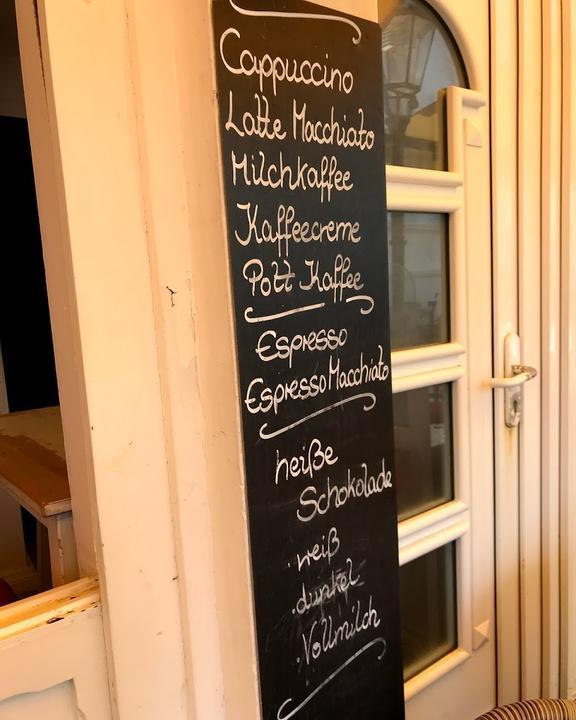 Cappuccino
Latte Macchiato
Milchkaffee
Kaffeecreme
Pott Kaffee
Espresso
Espresso Macchiato
heiße
Schokolade
· weiß
· dunkel
· Vollmilch